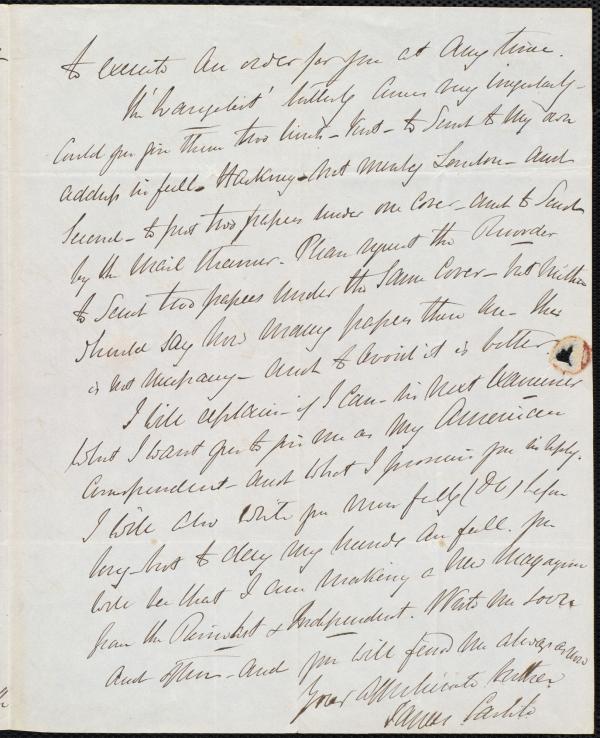 to execute an order for you at any time.
The 'Evangelist' latterly comes very irregularly -
Could you give them two hints - First - to send to my own
address in full - Hackney - not merely London - and
Second - to put two papers under one cover - and to send
by the Mail Steamer - Please request the Recorder
to send two papers under the same cover - but neither
should say how many papers there are - this
is not necessary - and to avoid it is better
I will explain - if I can - in next Examiner
what I want you to give me as my American
Correspondent - and what I promise you in reply.
I will also write you more fully (DV) before
long - but to day my hands are full. You
will see that I am making a new Magazine
from the Revivalist & Independent. Write me soon
and often - and you will find me always as now
Your affectionate brother
James